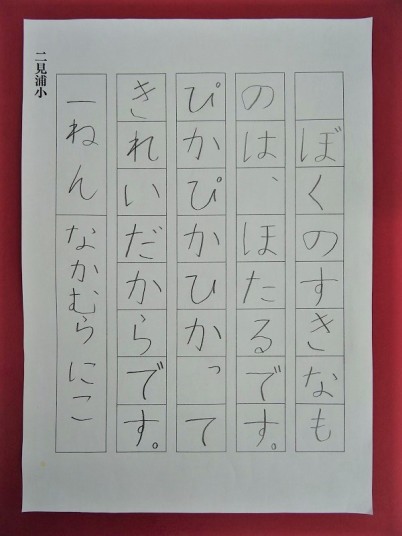 ぼくのすきなも
のは、ほたるです。
ぴかぴかひかって
きれいだからです。
一ねん なかむらにこ
二見浦小